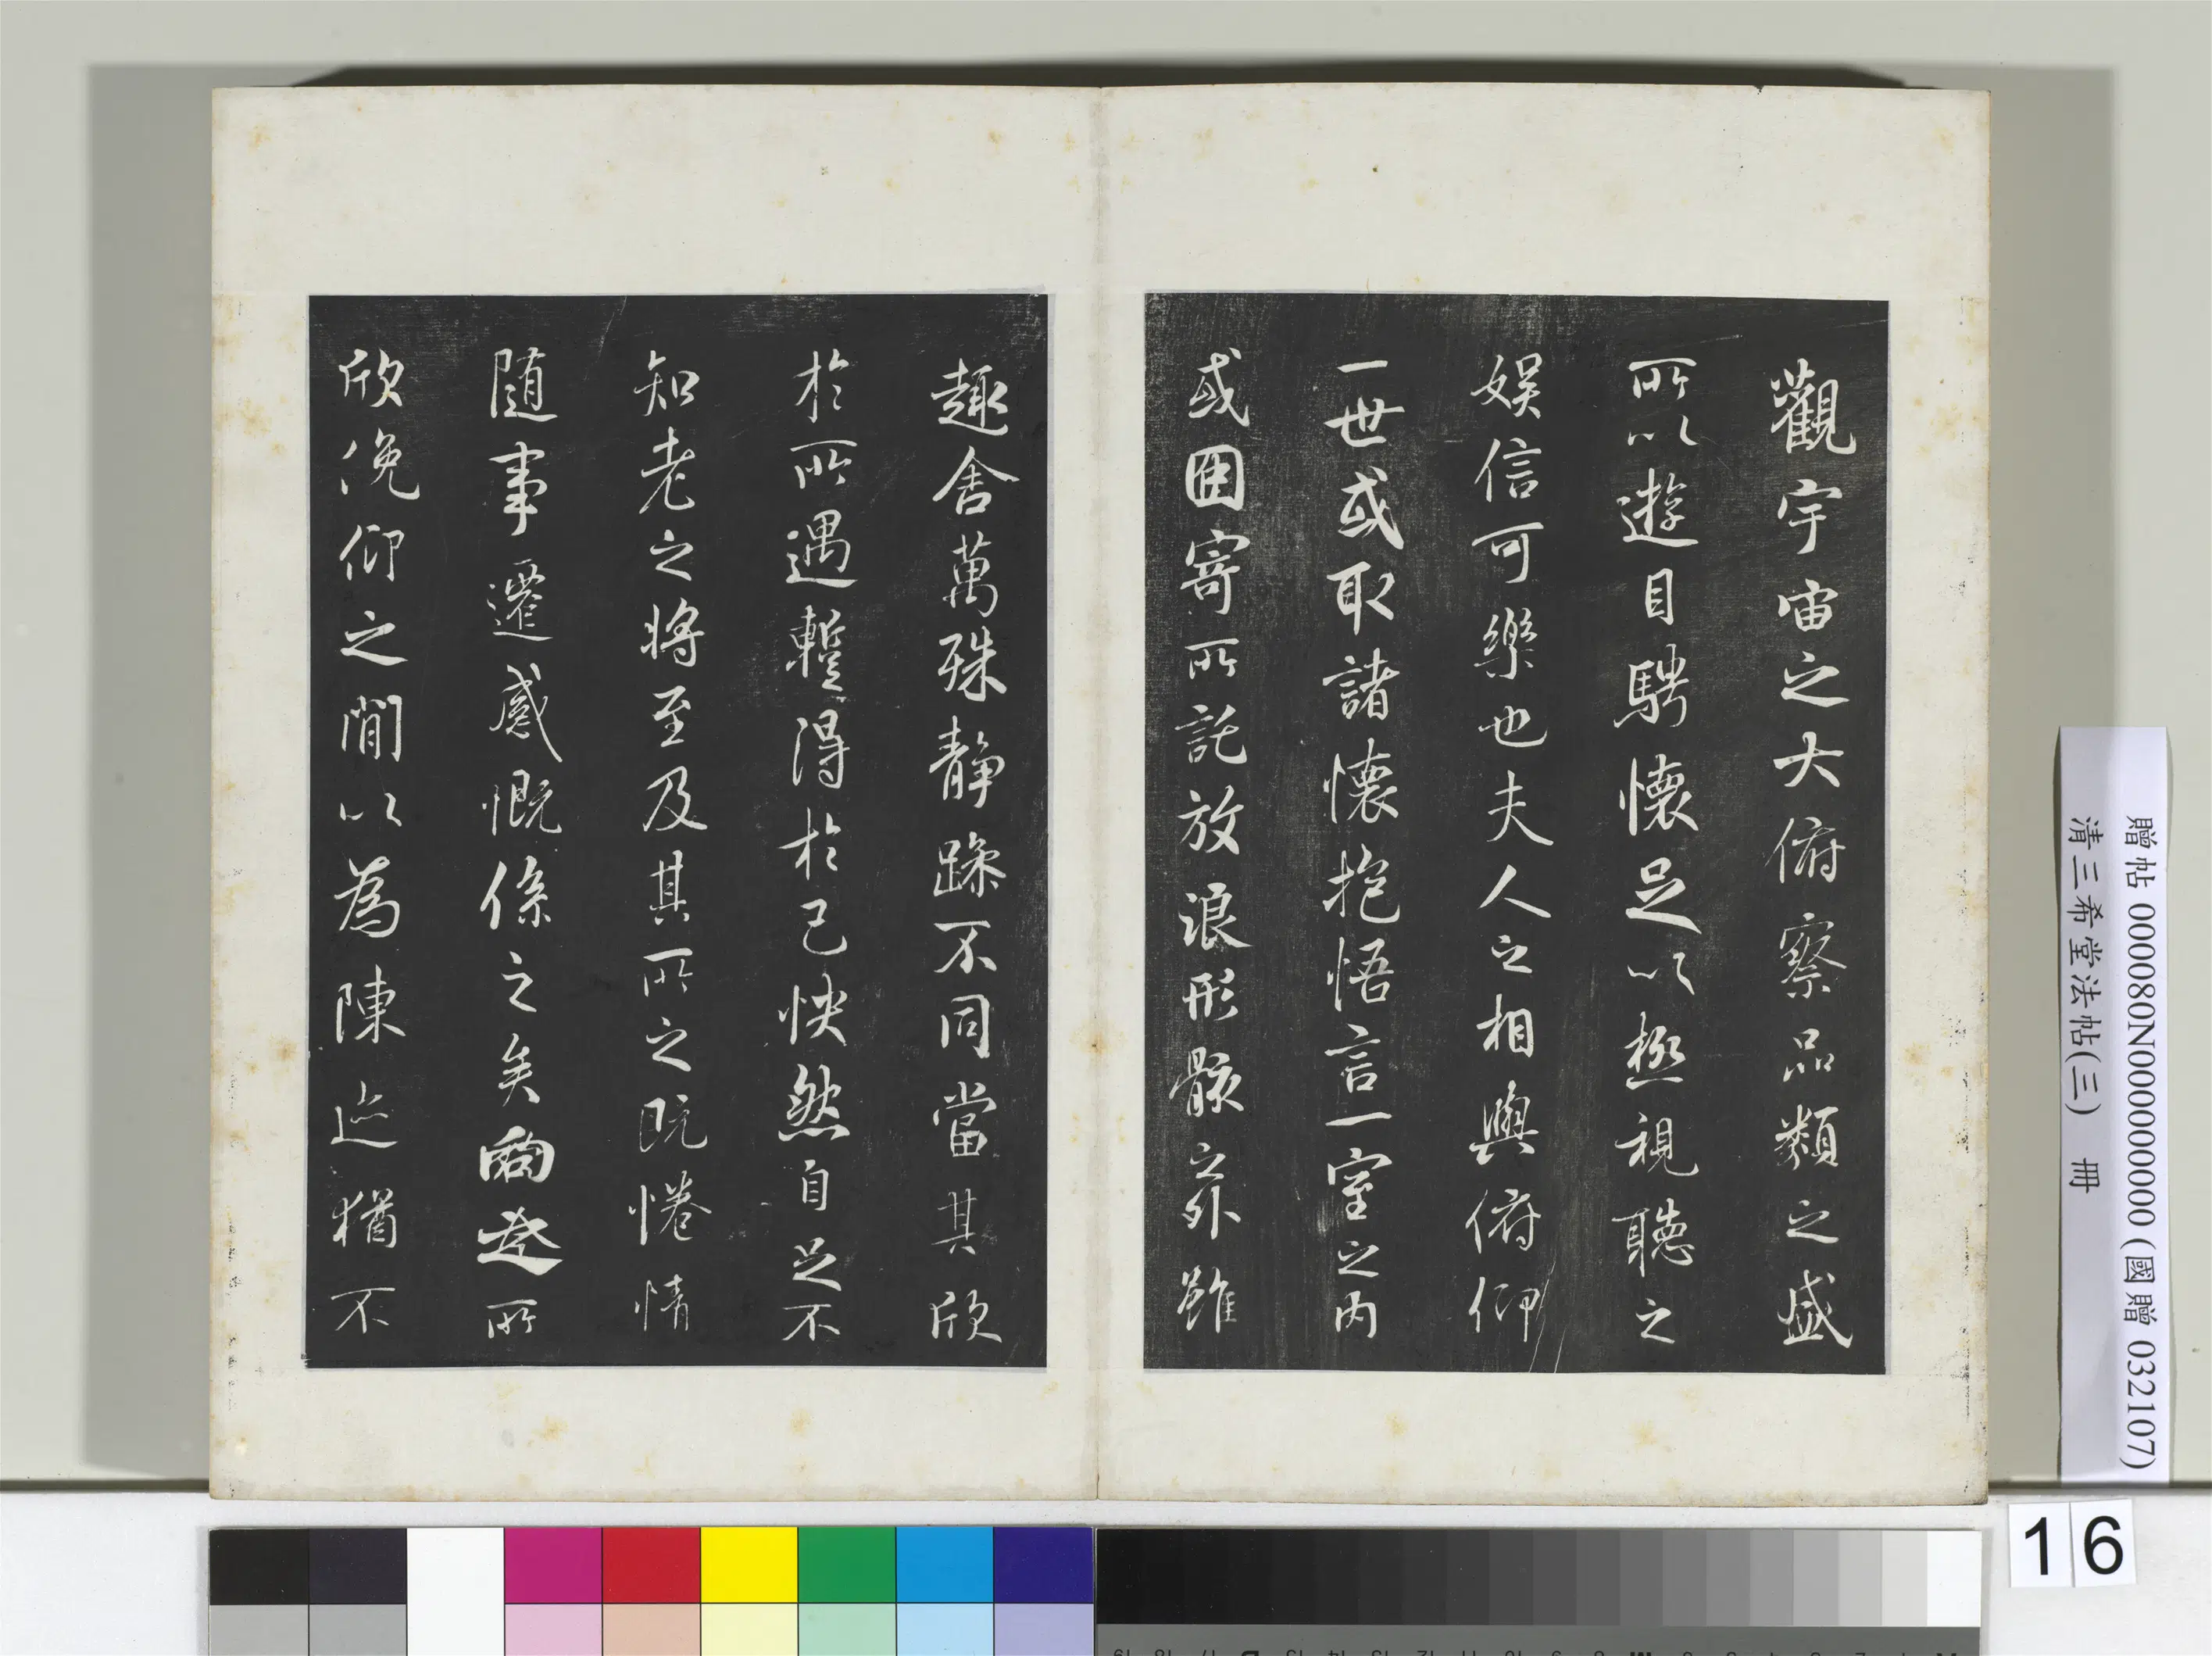 觀宇宙之大俯察品類之盛
所以遊目騁懷足以極視聽之
娛信可樂也夫人之相與俯仰
一世或取諸懷抱悟言一室之內
或因寄所託放浪形骸之外雖
趣舍萬殊靜躁不同當其欣
於所遇暫得於己怏然自足不
知老之將至及其所之既惓情
隨事遷感慨係之矣向之所
欣俛仰之閒以為陳迹猶不
贈帖 000080N000000000 (國贈 032107)
清三希堂法帖(三) 冊
16